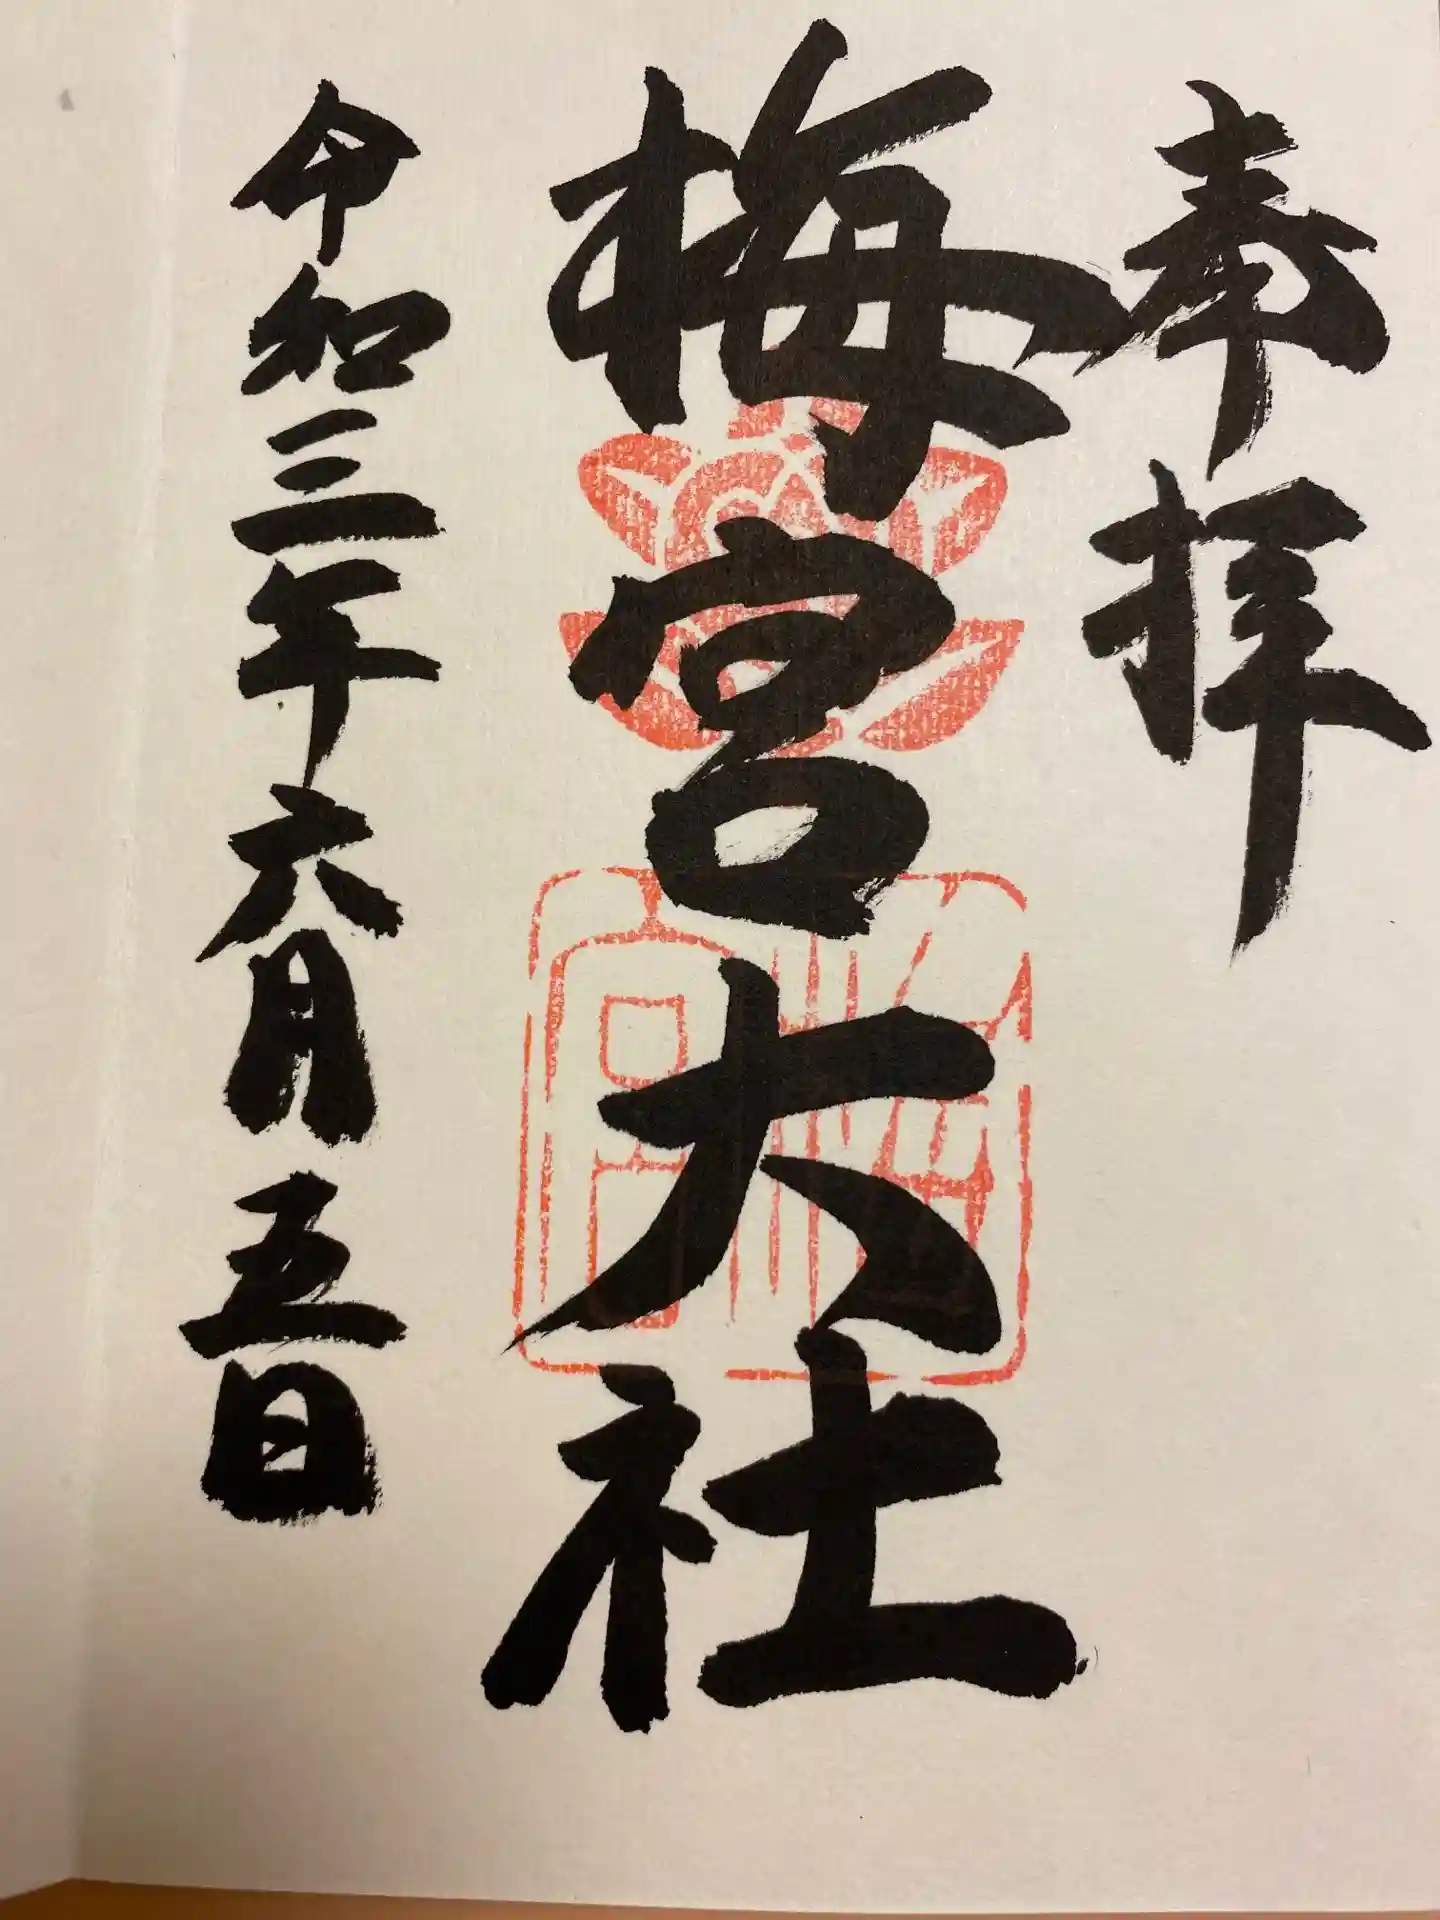 奉拝
梅宮大社
令和三年六月五日
梅宮